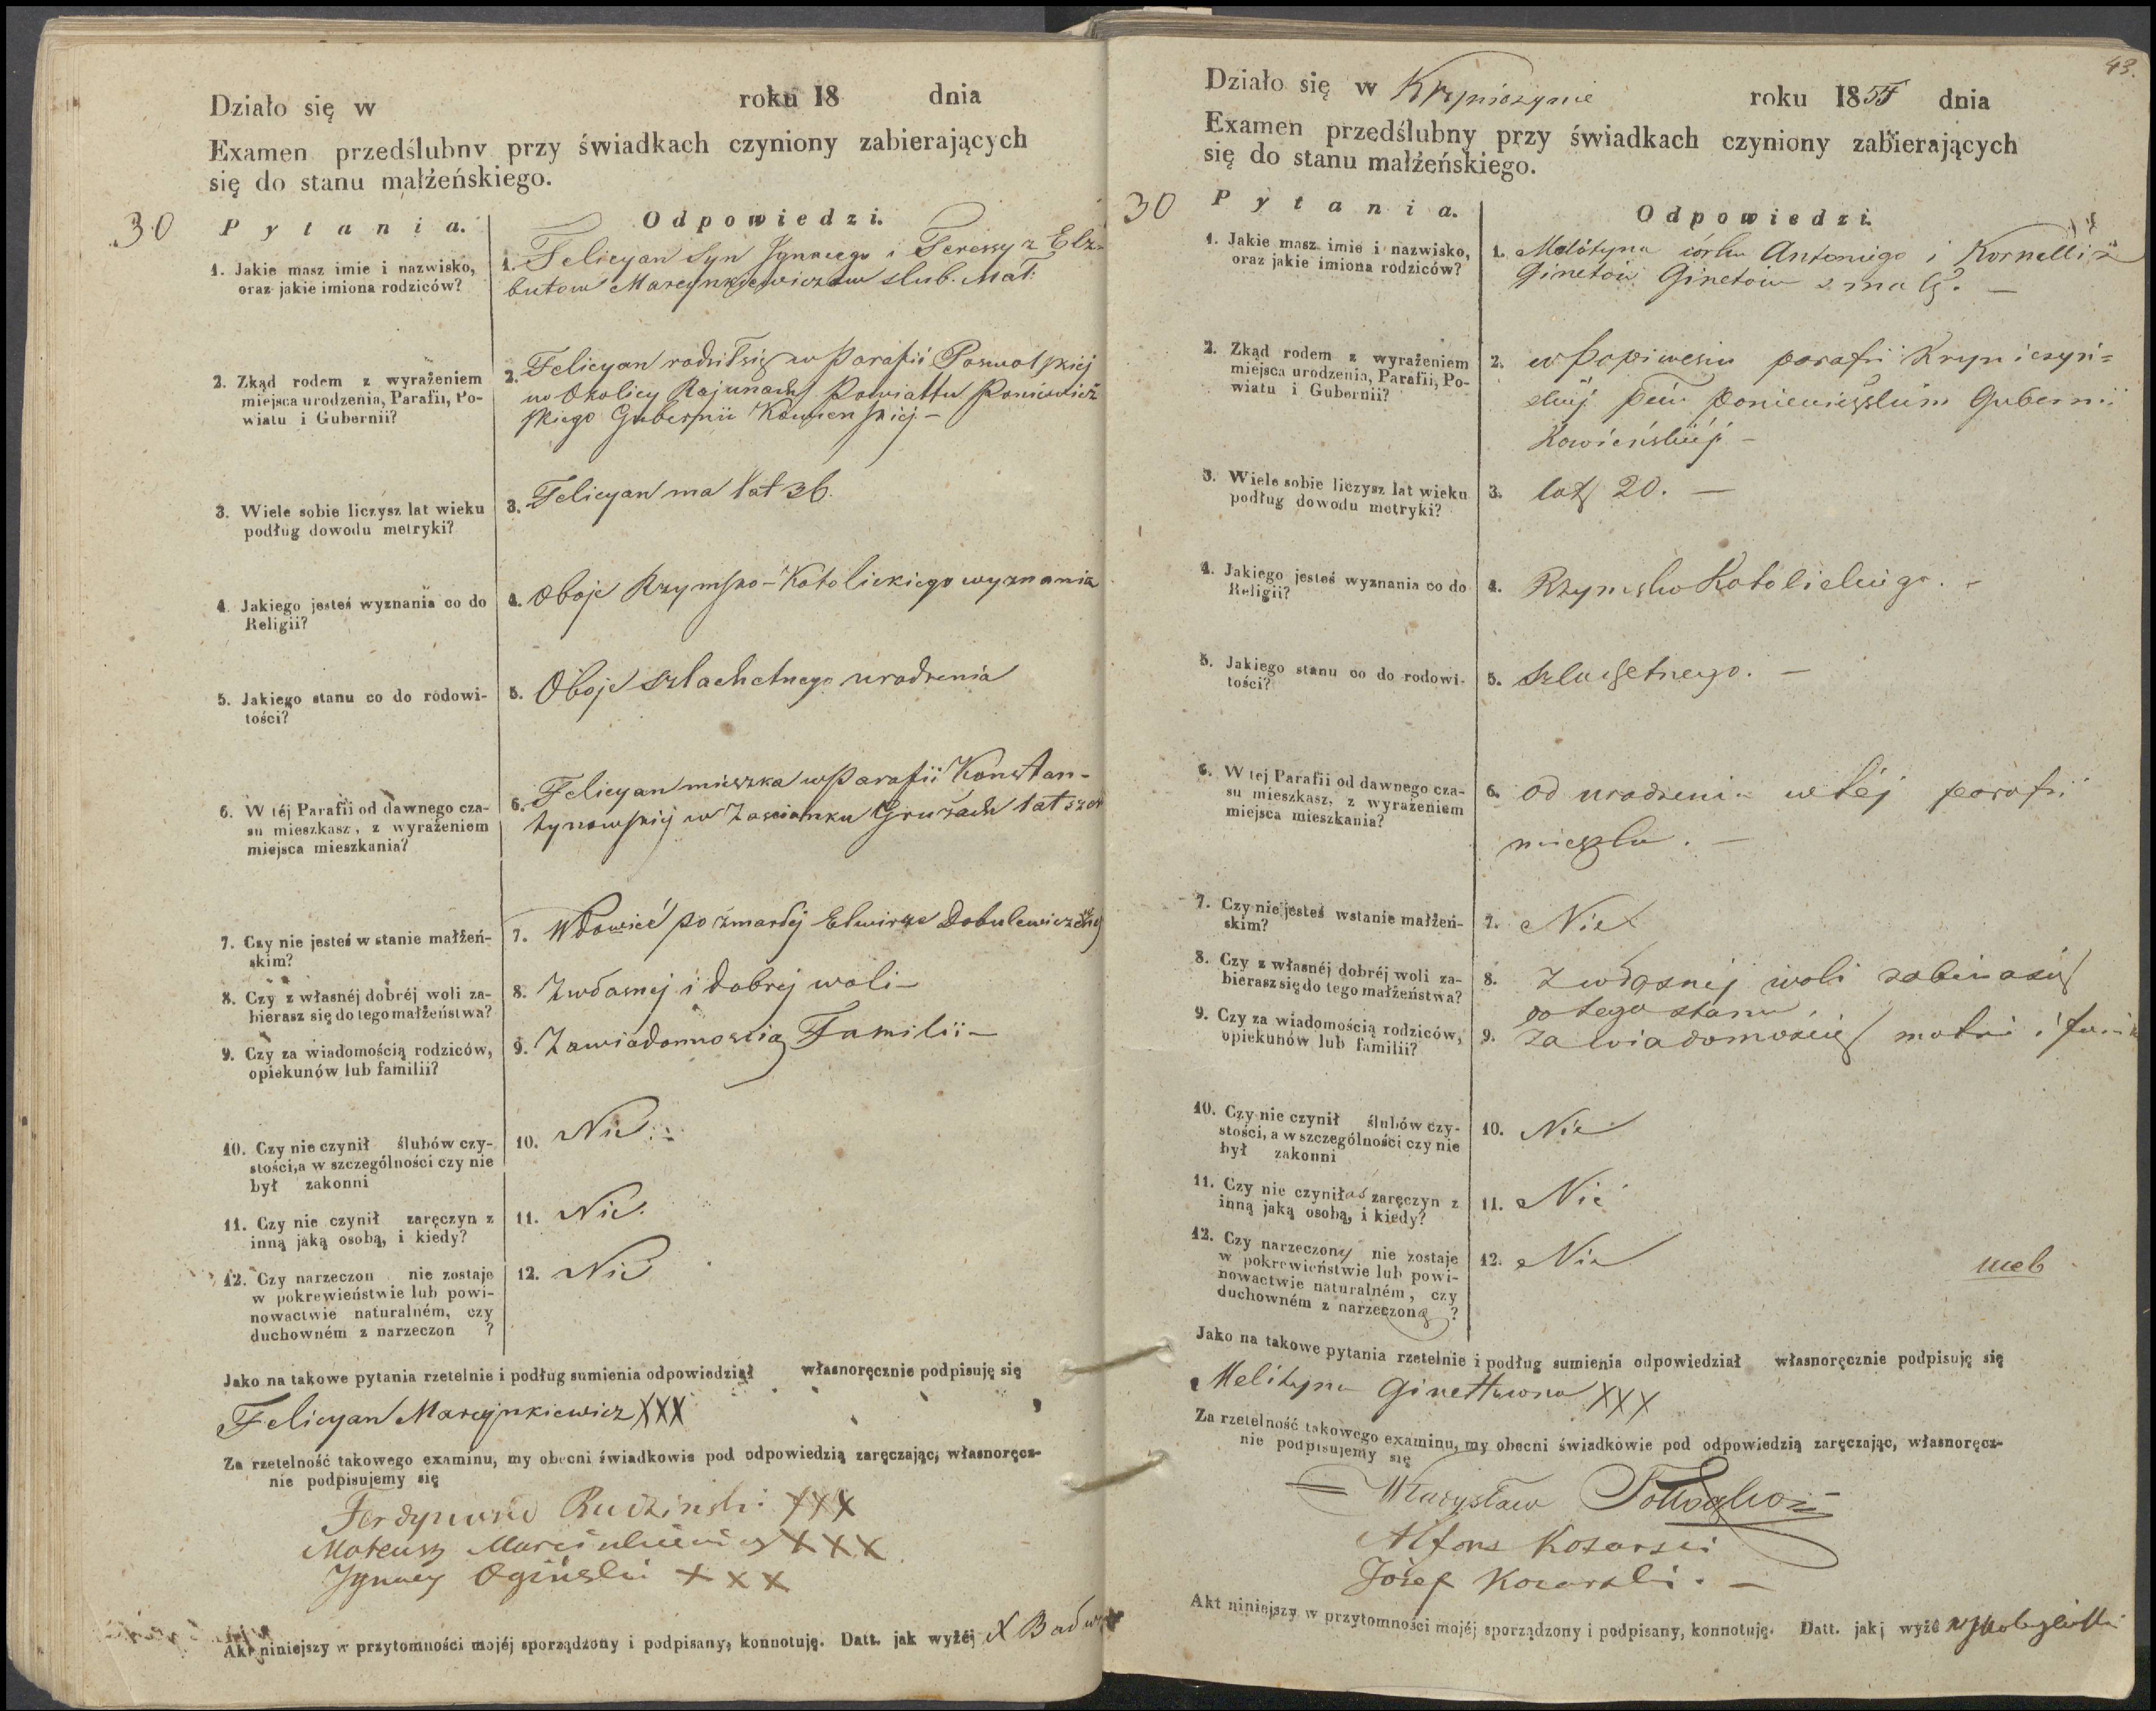 Działo się w roku 18 dnia
Examen przedślubny przy świadkach czyniony zabierających
się do stanu małżeńskiego.
30 Pytania. Odpowiedzi.
1. Jakie masz imie i nazwisko,
oraz jakie imiona rodziców?
1. Felicyan Syn Ignacego i Teressy z Elz-
butow Marcynkiewiczow slub. Mał.
2. Zkąd rodem z wyrażeniem
miejsca urodzenia, Parafii, Po-
wiatu i Gubernii?
2. Felicyan rodził się w Parafii
w Okolicy Powiattu
skiego Gubernii Kowienskiej –
3. Wiele sobie liczysz lat wieku
podług dowodu metryki?
3. Felicyan ma lat 36.
4. Jakiego jesteś wyznania co do
Religii?
4. Oboje Rzymsko-Katolickiego wyznania
5. Jakiego stanu co do rodowi-
tości?
5. Oboje szlachetnego urodzenia
6. W téj Parafii od dawnego cza-
su mieszkasz, z wyrażeniem
miejsca mieszkania?
6. Felicyan mieszka w Parafii Konstan-
tynowskiej w Zascianku Gružach lat
7. Czy nie jesteś w stanie małżeń-
skim?
7. Wdowieć po zmarłej Elwirze
8. Czy z własnéj dobréj woli za-
bierasz się do tego małżeństwa?
8. Zwłasnej i dobrej woli –
9. Czy za wiadomością rodziców,
opiekunów lub familii?
9. Zawiadomoscią Familii –
10. Czy nie czynił ślubów czy-
stości, a w szczególności czy nie
był zakonni
10. Nie.
11. Czy nie czynił zaręczyn z
inną jaką osobą, i kiedy?
11. Nie.
12. Czy narzeczon nie zostaje
w pokrewieństwie lub powi-
nowactwie naturalném, czy
duchowném z narzeczon ?
12. Nie
Jako na takowe pytania rzetelnie i podług sumienia odpowiedział własnoręcznie podpisuję się
Felicyan Marcynkiewicz XXX
Za rzetelność takowego examinu, my obecni świadkowie pod odpowiedzią zaręczając, własnoręcz-
nie podpisujemy się
Ferdynand Rudzinski XXX
Mateusz XXX
Ignacy Ogiński XXX
Akt niniejszy w przytomności mojéj sporządzony i podpisany, konnotuję. Datt. jak wyżéj X
43.
Działo się w Kryniczynie roku 1855 dnia
Examen przedślubny przy świadkach czyniony zabierających
się do stanu małżeńskiego.
30 Pytania. Odpowiedzi.
1. Jakie masz imie i nazwisko,
oraz jakie imiona rodziców?
1. córka Antoniego i Kornelli
Ginetów Ginetow
2. Zkąd rodem z wyrażeniem
miejsca urodzenia, Parafii, Po-
wiatu i Gubernii?
2. w parafii Kryniczyń=
skiej Gubernii
Kowieńskiej –
3. Wiele sobie liczysz lat wieku
podług dowodu metryki?
3. lat 20. –
4. Jakiego jesteś wyznania co do
Religii?
4. Rzymsko Katolickiego. –
5. Jakiego stanu co do rodowi-
tości?
5. szlachetnego. –
6. W tej Parafii od dawnego cza-
su mieszkasz, z wyrażeniem
miejsca mieszkania?
6. od urodzenia w téj parafii
mieszka. –
7. Czy nie jesteś wstanie małżeń-
skim?
7. Nie
8. Czy z własnéj dobréj woli za-
bierasz się do tego małżeństwa?
8. Z własnej woli
do tego stanu
9. Czy za wiadomością rodziców,
opiekunów lub familii?
9. Za wiadomością matki i
10. Czy nie czynił ślubów czy-
stości, a w szczególności czy nie
był zakonni
10. Nie
11. Czy nie czyniłaś zaręczyn z
inną jaką osobą, i kiedy?
11. Nie
12. Czy narzeczony nie zostaje
w pokrewieństwie lub powi-
nowactwie naturalném, czy
duchowném z narzeczoną ?
12. Nie
Jako na takowe pytania rzetelnie i podług sumienia odpowiedział własnoręcznie podpisuję się
Melityna Ginettowna XXX
Za rzetelność takowego examinu, my obecni świadkowie pod odpowiedzią zaręczając, własnoręcz-
nie podpisujemy się
Władysław
Alfons Kozarski
Józef Kozarski. –
Akt niniejszy w przytomności mojéj sporządzony i podpisany, konnotuję. Datt. jak wyżé